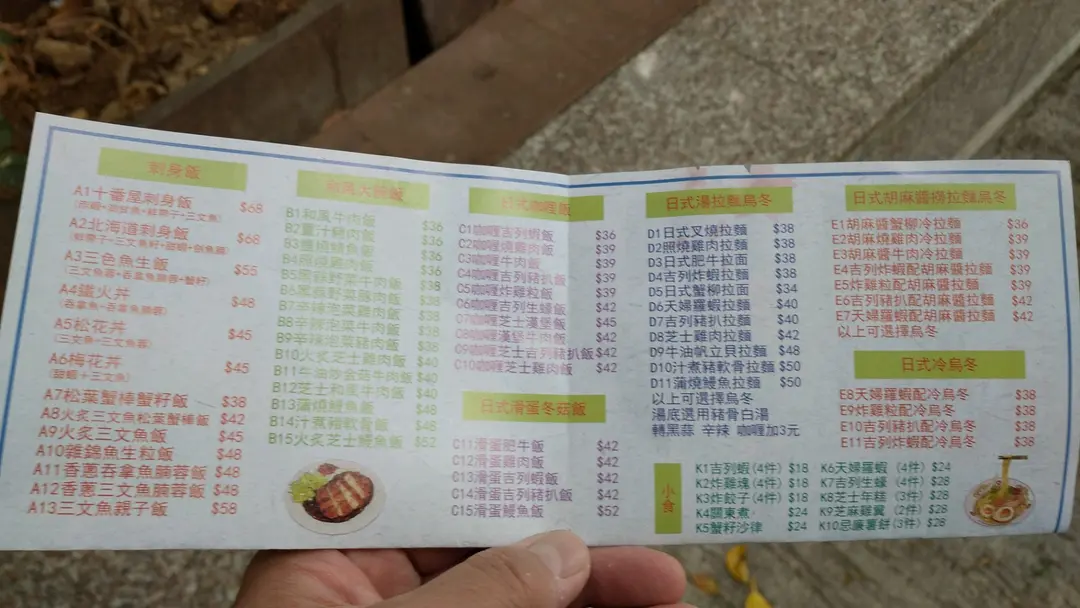 刺身飯
A1十番屋刺身飯 $68
A2北海道刺身飯 $68
A3三色魚生飯 $55
A4鐵火丼 $48
A5松花丼 $45
(三文魚·三文魚蓉)
A6梅花丼 $45
(甜蝦·三文魚)
A7松葉蟹棒蟹籽飯 $38
A8火炙三文魚松葉蟹棒飯 $42
A9火炙三文魚飯 $45
A10雜錦魚生粒飯 $48
A11香蔥吞拿魚腩蓉飯 $48
A12香蔥三文魚腩蓉飯 $48
A13三文魚親子飯 $58
B1和風牛肉飯 $36
B2薑汁豬肉飯 $36
$36
B4照燒雞肉飯 $36
B5黑蒜野菜牛肉飯 $38
B6黑蒜野菜豚肉飯 $38
B7辛辣泡菜雞肉飯 $38
B8辛辣泡菜牛肉飯 $38
B9辛辣泡菜豬肉飯 $38
B10火炙芝士雞肉飯 $40
B11牛油炒金菇牛肉飯 $40
B12芝士和風牛肉飯 $40
B13蒲燒鰻魚飯 $48
B14汁煮豬軟骨飯 $48
B15火炙芝士鰻魚飯 $52
日式咖喱飯
C1咖喱吉列蝦飯 $36
C2咖喱燒雞肉飯 $39
C3咖喱牛肉飯 $39
C4咖喱吉列豬扒飯 $39
C5咖喱炸雞粒飯 $39
C6咖喱吉列生蠔飯 $42
C7咖喱芝士漢堡飯 $45
C8咖喱漢堡牛肉飯 $42
C9咖喱芝士吉列豬扒飯 $42
C10咖喱芝士雞肉飯 $42
日式滑蛋冬菇飯
C11滑蛋肥牛飯 $42
C12滑蛋雞肉飯 $42
C13滑蛋吉列蝦飯 $42
C14滑蛋吉列豬扒飯 $42
C15滑蛋鰻魚飯 $52
日式湯拉麵烏冬
D1日式叉燒拉麵 $38
D2照燒雞肉拉麵 $38
D3日式肥牛拉面 $38
D4吉列炸蝦拉麵 $38
D5日式蟹柳拉面 $34
D6天婦羅蝦拉麵 $40
D7吉列豬扒拉麵 $40
D8芝士雞肉拉麵 $42
D9牛油帆立貝拉麵 $48
D10汁煮豬軟骨拉麵 $50
D11蒲燒鰻魚拉麵 $50
以上可選擇烏冬
湯底選用豬骨白湯
轉黑蒜 辛辣 咖喱加3元
日式胡麻醬撈拉麵烏冬
E1胡麻醬蟹柳冷拉麵 $36
E2胡麻燒雞肉冷拉麵 $39
E3胡麻醬牛肉冷拉麵 $39
E4吉列炸蝦配胡麻醬拉麵 $39
E5炸雞粒配胡麻醬拉麵 $39
E6吉列豬扒配胡麻醬拉麵 $42
E7天婦羅蝦配胡麻醬拉麵 $42
以上可選擇烏冬
日式冷烏冬
E8天婦羅蝦配冷烏冬 $38
E9炸雞粒配冷烏冬 $38
E10吉列豬扒配冷烏冬 $38
E11吉列炸蝦配冷烏冬 $38
小食
K1吉列蝦(4件) $18 K6天婦羅蝦 (4件) $24
K2炸雞塊(4件) $18 K7吉列生蠔 (4件) $28
K3炸餃子(4件) $18 K8芝士年糕 (3件) $28
K4關東煮 $24 K9芝麻雞翼 (2件) $28
K5蟹籽沙律 $24 K10忌廉薯餅(3件) $28